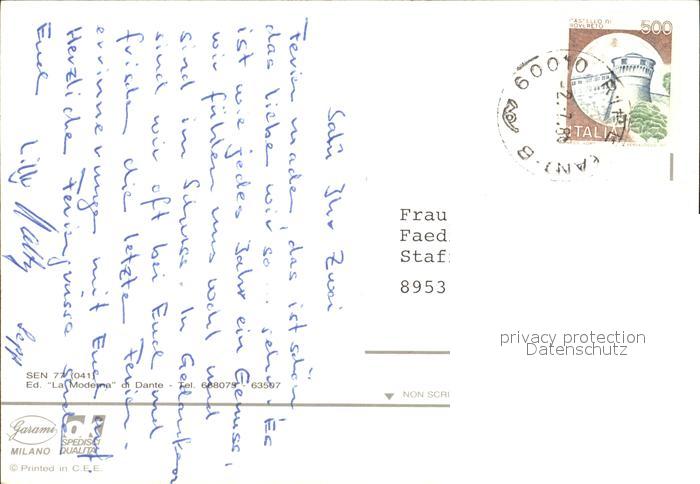 Salü Ihr Zwei
Ferien machen, das ist schön
das lieben wir so... gehn. Es
ist wie jedes Jahr ein Genuss,
wir fühlen uns wohl und
sind im Schuss. In Gedanken
sind wir oft bei Euch und
frischen die letzte Ferien-
errinnerungen mit Euch auf.
Herzliche Feriengrüsse sendet
Euch
Lilly Sepp
CASTELLO DI
ROVERETO
500
ITALIA
60010
-2.7.8
Frau
Faed
Staf
8953
privacy protection
Datenschutz
SEN 77 (041)
Ed. "La Moderna" di Dante - Tel. 668079 - 63507
NON SCRI
Garami
MILANO
SPEDISCI
QUALITA'
© Printed in C.E.E.